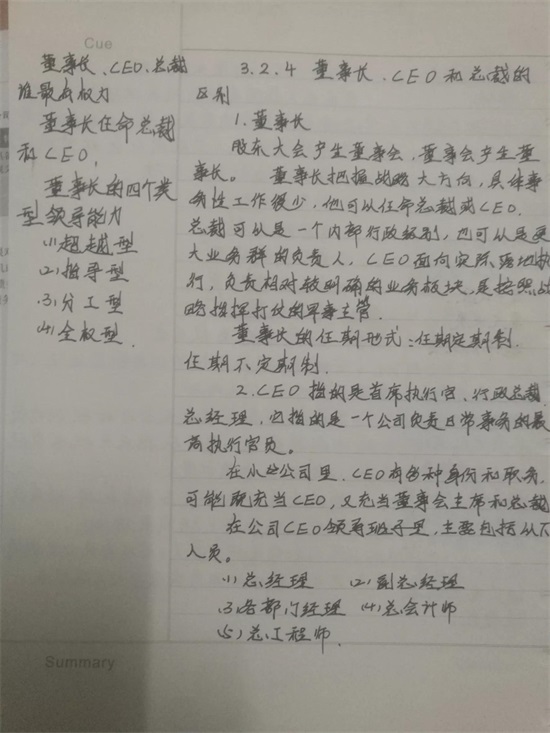 Cue
董事长、CEO、总裁
谁最有权力
董事长任命总裁
和CEO,
董事长的四个类
型领导能力
(1)超越型
(2)指导型
(3)分工型
(4)全权型.
3.2.4 董事长、CEO和总裁的
区别
1.董事长
股东大会产生董事会,董事会产生董
事长。董事长把握战略大方向,具体事
务性工作很少,他可以任命总裁或CEO.
总裁可以是一个内部行政级别,也可以是更
大业务群的负责人,CEO面向实际落地执
行,负责相对较明确的业务板块,是按照战
略指挥打仗的军事主管.
董事长的任期形式:任期定期制.
任期不定期制.
2.CEO指的是首席执行官、行政总裁、
总经理,它指的是一个公司负责日常事务的最
高执行官员。
在小型公司里,CEO有多种身份和职务,
可能既充当CEO,又充当董事会主席和总裁
在公司CEO领导班子里,主要包括以下
人员。
(1)总经理 (2)副总经理
(3)各部门经理 (4)总会计师
(5)总工程师.
Summary